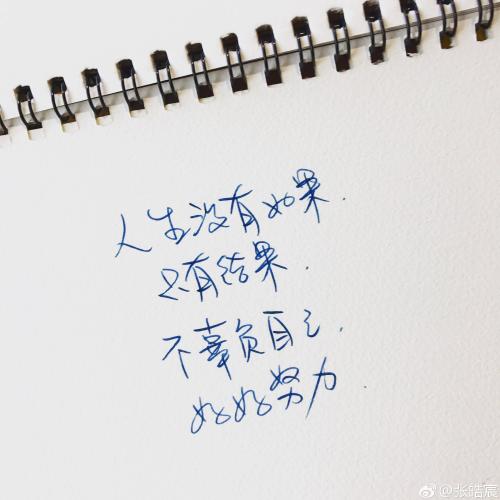 人生没有如果.
只有结果.
不辜负自己.
好好努力
@张皓宸